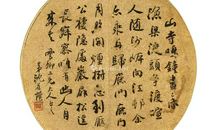 山寺鳴鐘晝已昏
漁梁渡頭爭渡喧
人隨沙岸向江邨余
亦乘舟歸鹿門鹿門
月照開煙樹忽到龐
公棲隱處巖扉松徑
長寂寥惟有幽人自
來去